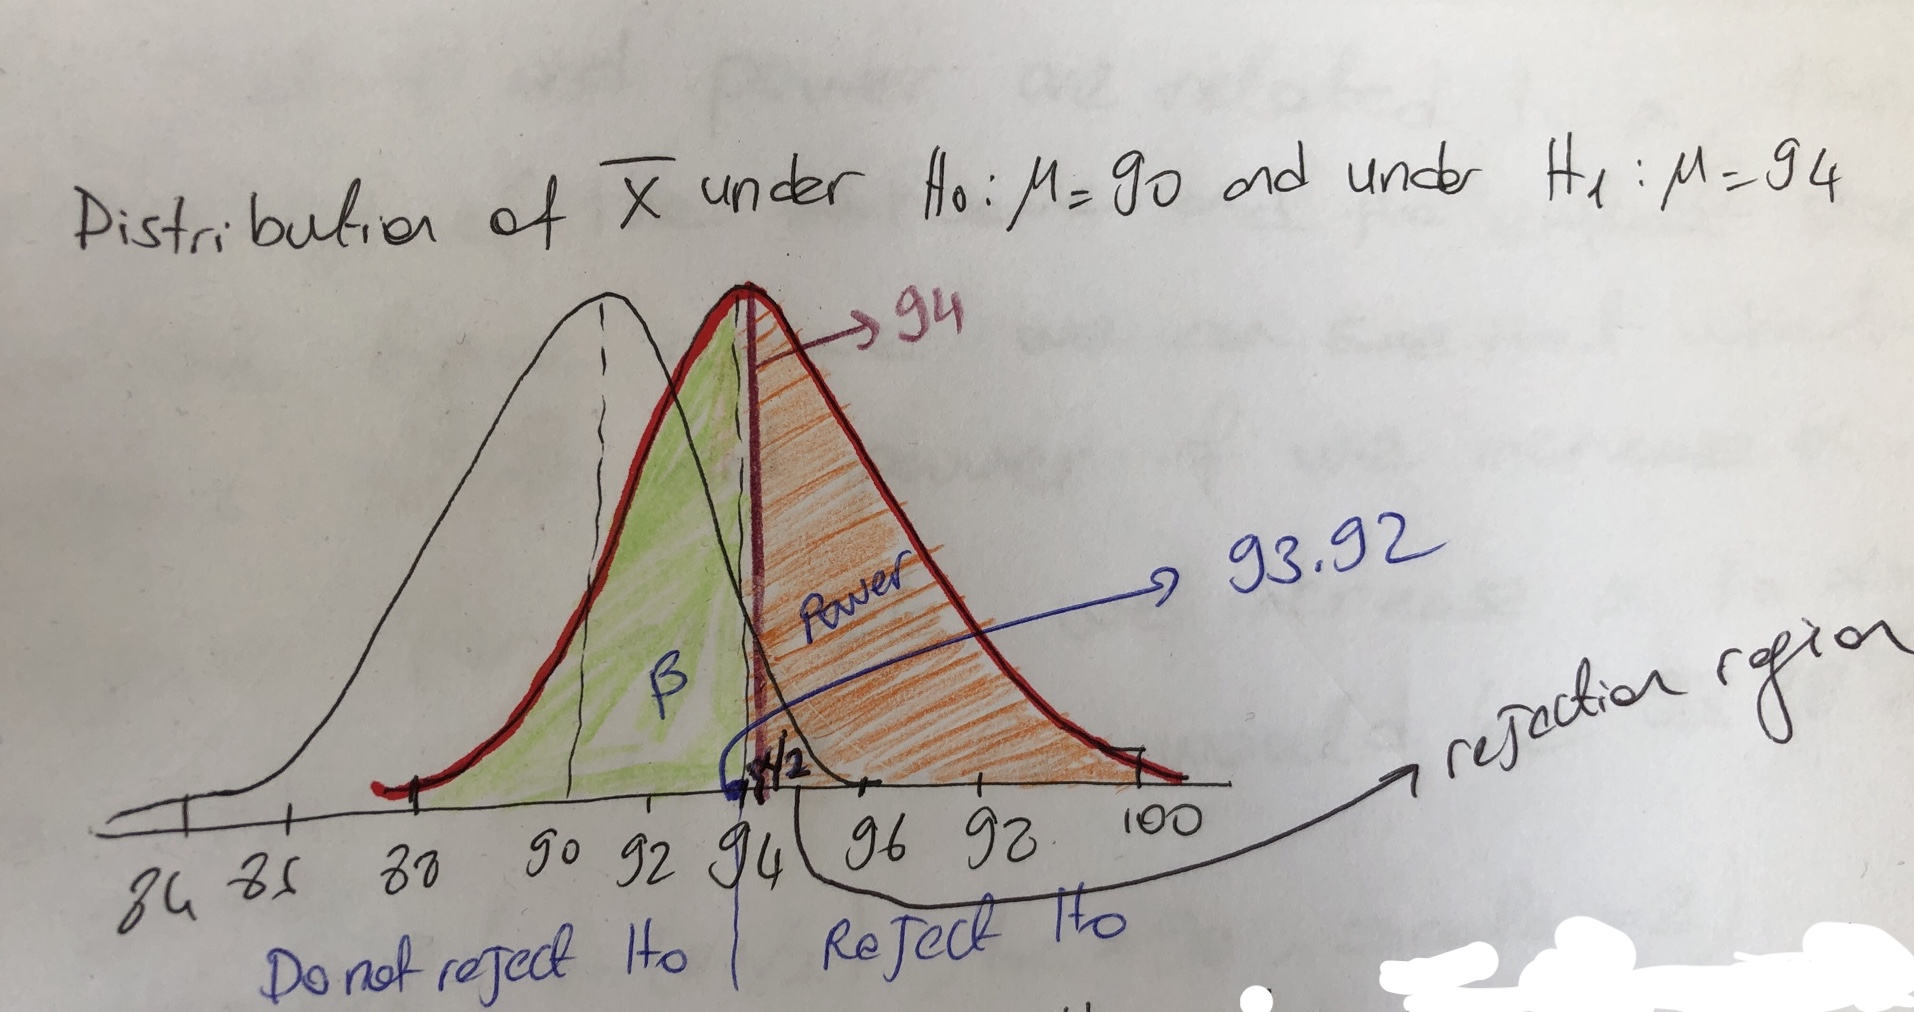 Distribution of X̅ under H₀: μ=90 and under H₁: μ=94
94
93.92
Power
β
α/2
rejection region
84 85 88 90 92 94 96 98 100
Do not reject H₀ Reject H₀